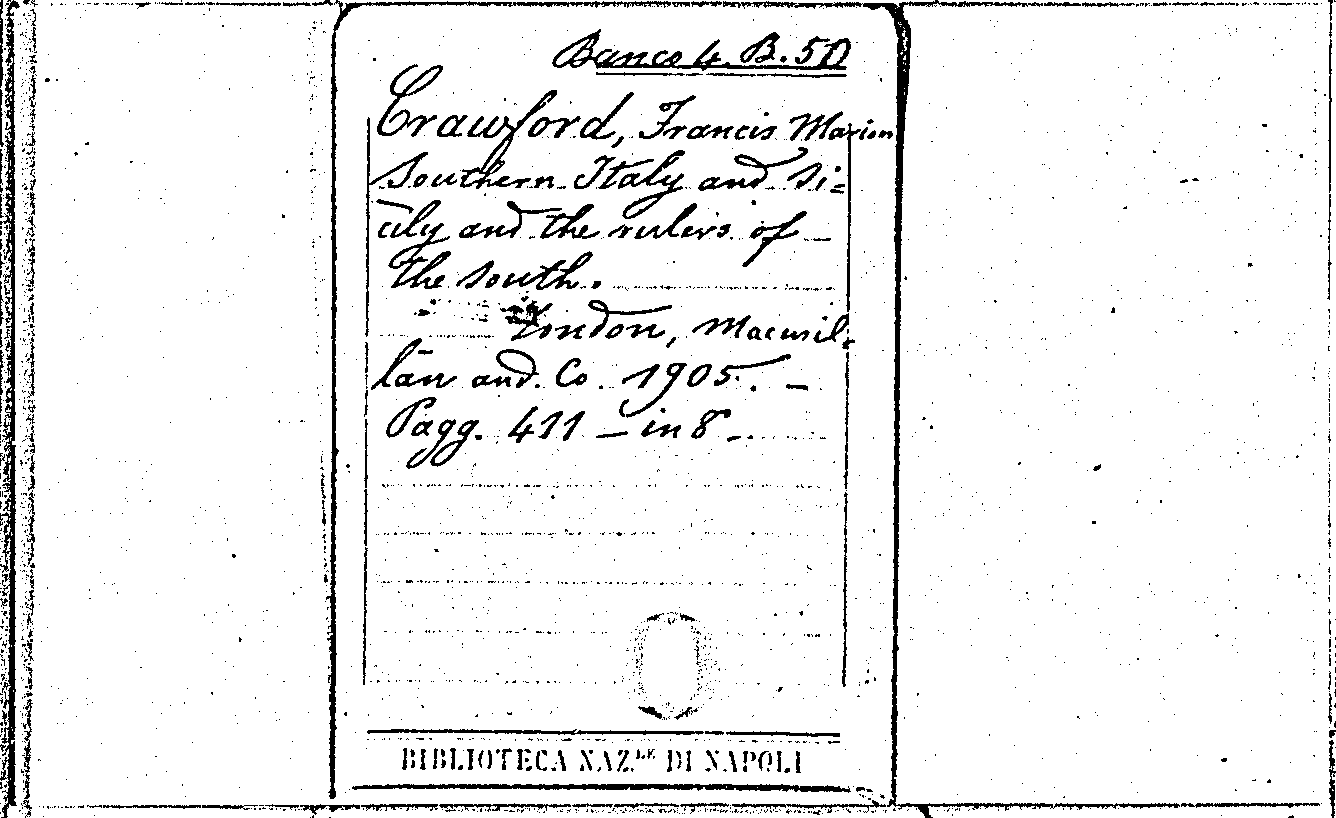 Banco 4. B. 50
Crawford, Francis Marion
Southern Italy and Si=
cily and the rulers of –
the south.
London, Macmil=
lan and Co. 1905. –
Pagg. 411 – in 8 –
BIBLIOTECA NAZ.LE DI NAPOLI